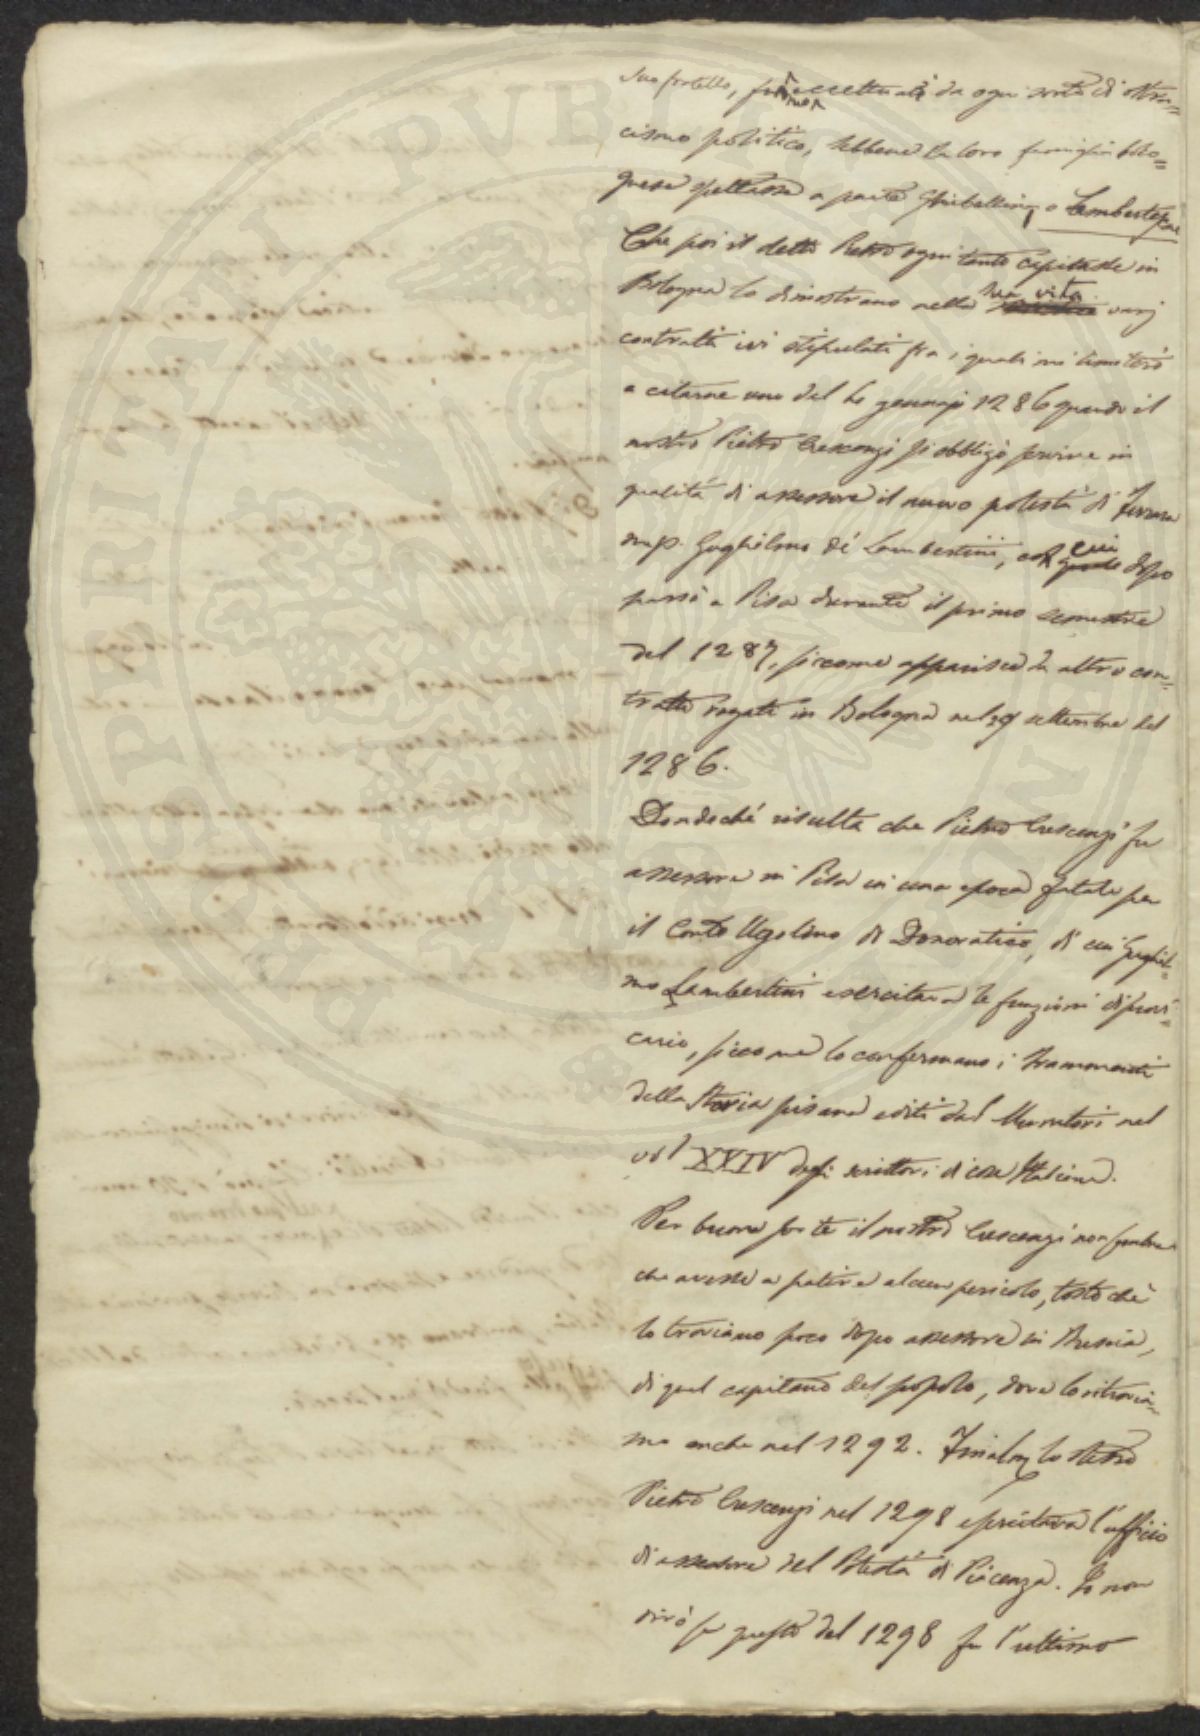 suo fratello, furono eccettuati da ogni sorta di ostra=
cismo politico, sebbene la loro famiglia bolo=
gnese spettasse a parte Ghibellina, o Lambertazza
Che poi il detto Pietro ogni tanto capitasse in
Bologna lo dimostrano nella sua vita varj
contratti ivi stipulati fra i quali mi limiterò
a citarne uno del gennajo 1286 quando il
nostro Pietro Crescenzi si obbligò servire in
qualità di assessore il nuovo potestà di Ferrara
Guglielmo de' Lambertini, con cui dopo
passò a Pisa durante il primo semestre
del 1287, siccome apparisce da altro con=
tratto rogato in Bologna nel 29 settembre del
1286.
Dondechè risulta che Pietro Crescenzi fu
assessore in Pisa in una epoca fatale per
il Conte Ugolino di Donoratico, di cui Gugliel=
mo Lambertini esercitava le funzioni di provi=
cario, siccome lo confermano i frammenti
della Storia pisana editi dal Muratori nel
vol XXIV degli scrittori di cose Italiane.
Per buona sorte il nostro Crescenzi non sembra
che avesse a patire alcun pericolo, tosto chè
lo troviamo poco dopo assessore in Brescia,
di quel capitano del popolo, dove lo ritrovia=
mo anche nel 1292. Finalm lo stesso
Pietro Crescenzi nel 1298 esercitava l'uffizio
di assessore del Potestà di Piacenza. Io non
dirò se questo del 1298 fu l'ultimo
PROSPERITATI PUBLICAE